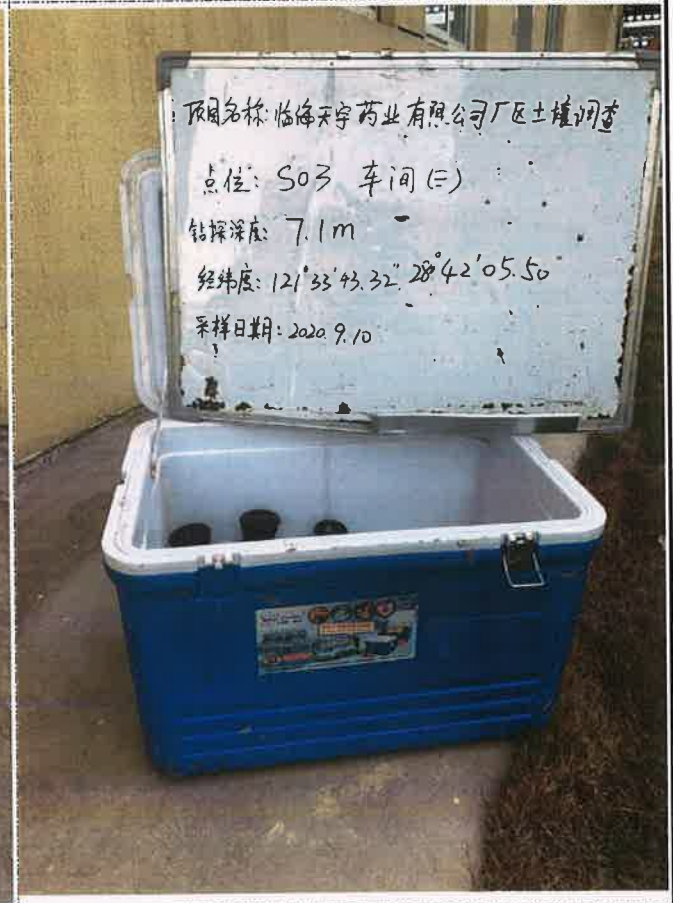 项目名称:临海天宇药业有限公司厂区土壤调查
点位: S03 车间(二)
钻探深度: 7.1m
经纬度: 121°33'43.32" 28°42'05.50"
采样日期: 2020.9.10